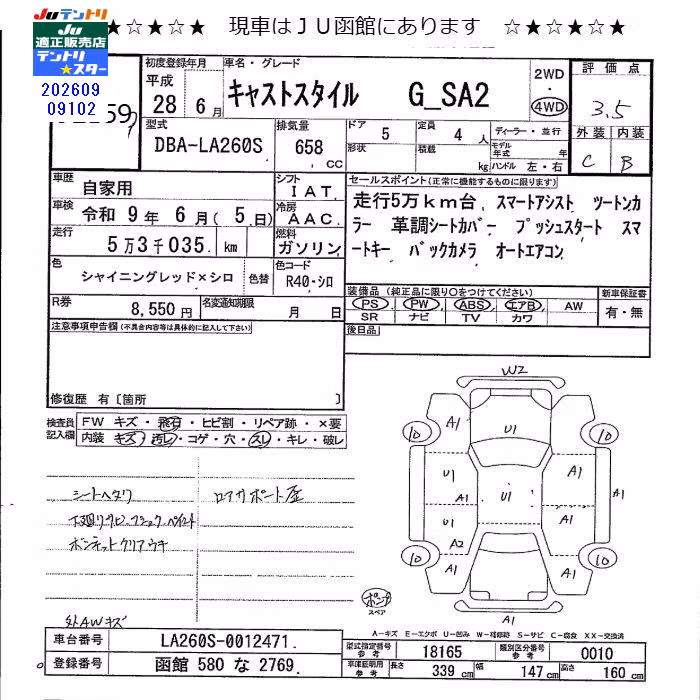 ☆★☆★☆★ 現車はJU函館にあります ☆★☆★☆★
JUテントリ
JU
適正販売店
テントリ
★スター
202609
09102
初度登録年月
平成
28 6月
車名・グレード
キャストスタイル G_SA2
2WD
・
4WD
評価点
3.5
外装 内装
C B
型式
DBA-LA260S
排気量
658
CC
ドア 5
形状
定員 4 人
積載 kg
ディーラー・並行
モデル年式 年
ハンドル 左・右
車歴
自家用
車検
令和 9年 6月(5日)
走行
5万3千035 km
シフト
IAT
冷房
AAC
燃料
ガソリン
セールスポイント(正常に機能するものに限ります)
走行5万km台 スマートアシスト ツートンカ
ラー 革調シートカバー プッシュスタート スマ
ートキー バックカメラ オートエアコン
色
シャイニングレッド×シロ
色替
色コード
R40・シロ
R券
8,550円
名変通知期限
月 日
装備品(純正品に限り○をつけてください)
PS PW ABS エアB AW
SR ナビ TV カワ
新車保証書
有・無
後日品
注意事項申告欄(不具合内容等は具体的に記入して下さい)
修復歴 有〔箇所 〕
検査員
記入欄
FW キズ・飛石・ヒビ割・リペア跡・×要
内装 キズ・汚レ・コゲ・穴・スレ・キレ・破レ
シートヘタリ
下廻リサビ、ブラック、ペイント
ボンネットクリアウキ
外AWキズ
W2
A1
U1
10
10
U1
A1
U1
A1
A1
U1
A2
A1
10
10
A1
A1
A1
スペア
A-キズ E-エクボ U-凹み W-補修跡 S-サビ C-腐食 XX-交換済
車台番号
LA260S-0012471
登録番号
函館 580 な 2769
型式指定番号
参考
18165
類別区分番号
参考
0010
車庫証明用
参考
長さ 339 cm
幅 147 cm
高さ 160 cm